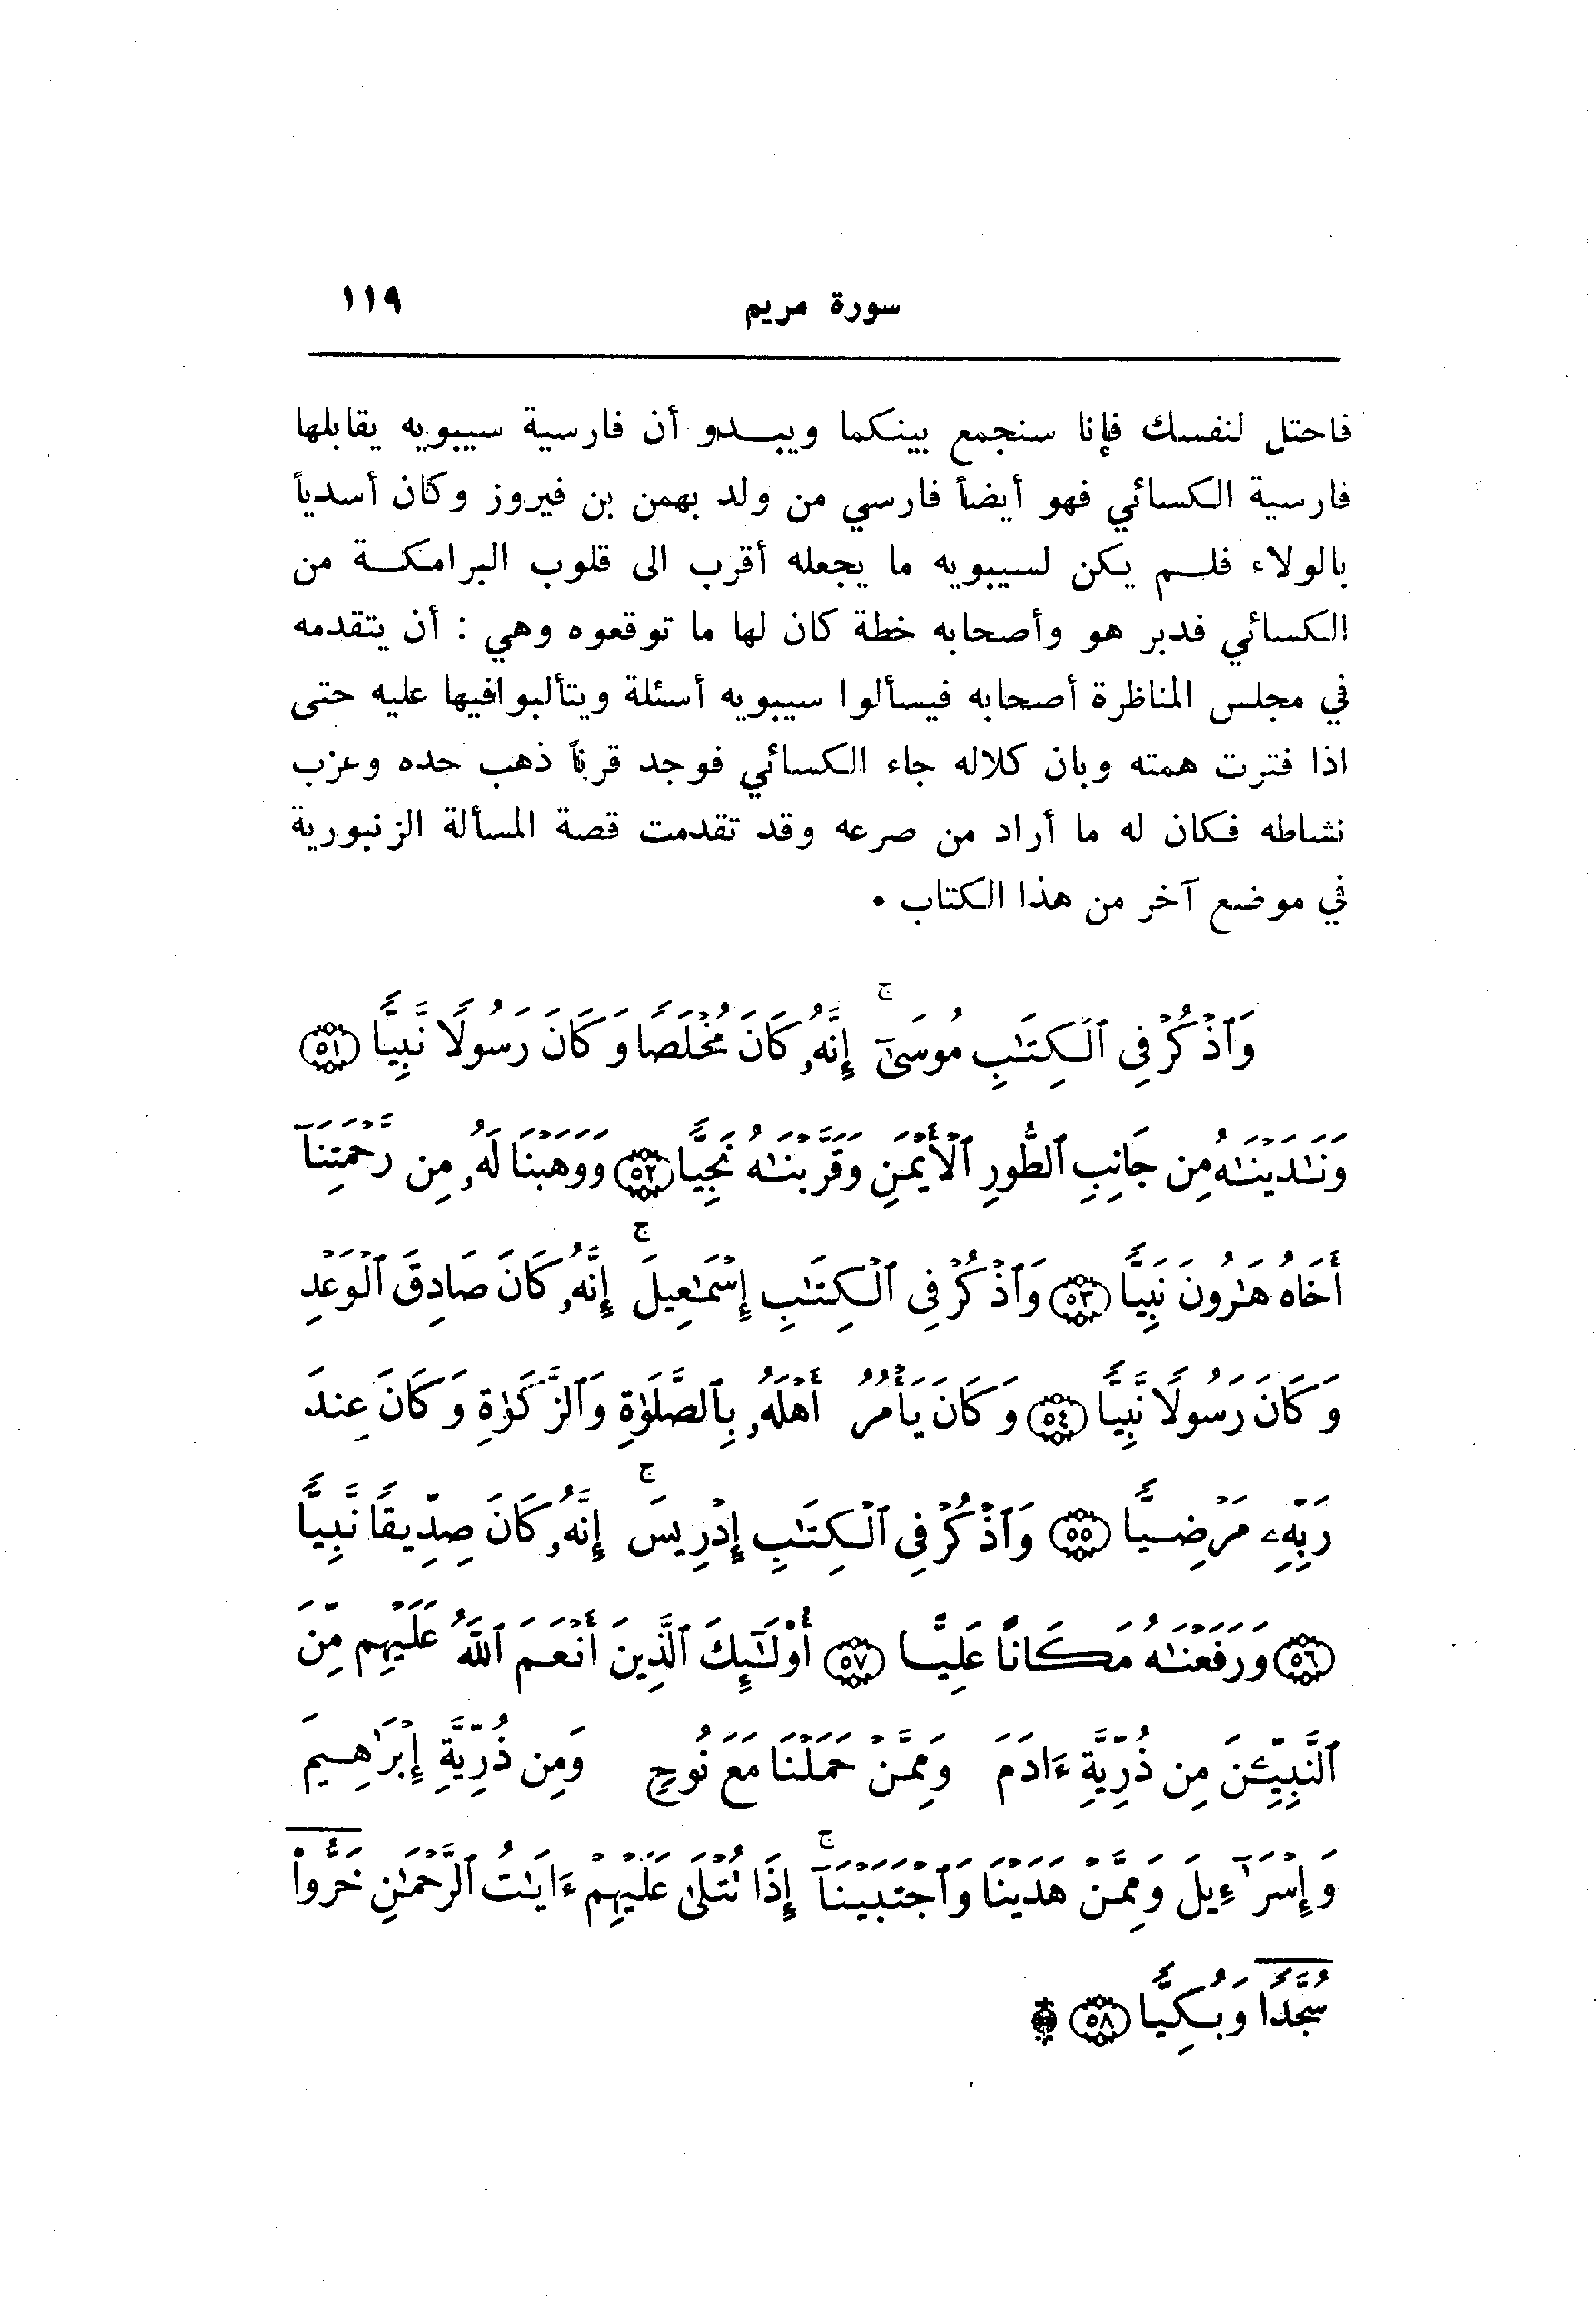 سورة مريم ١١٩
فاحتل لنفسك فإنا سنجمع بينكما ويبــدو أن فارسية سيبويه يقابلها
فارسية الكسائي فهو أيضاً فارسي من ولد بهمن بن فيروز وكان أسدياً
بالولاء فلــم يكن لسيبويه ما يجعله أقرب الى قلوب البرامكــة من
الكسائي فدبر هو وأصحابه خطة كان لها ما توقعوه وهي : أن يتقدمه
في مجلس المناظرة أصحابه فيسألوا سيبويه أسئلة ويتألبوافيها عليه حتى
اذا فترت همته وبان كلاله جاء الكسائي فوجد قرناً ذهب حده وعزب
نشاطه فكان له ما أراد من صرعه وقد تقدمت قصة المسألة الزنبورية
في موضع آخر من هذا الكتاب .
وَٱذْكُرْ فِى ٱلْكِتَـٰبِ مُوسَىٰٓ ۚ إِنَّهُۥ كَانَ مُخْلَصًا وَكَانَ رَسُولًا نَّبِيًّا ۝٥١
وَنَـٰدَيْنَـٰهُ مِن جَانِبِ ٱلطُّورِ ٱلْأَيْمَنِ وَقَرَّبْنَـٰهُ نَجِيًّا ۝٥٢ وَوَهَبْنَا لَهُۥ مِن رَّحْمَتِنَآ
أَخَاهُ هَـٰرُونَ نَبِيًّا ۝٥٣ وَٱذْكُرْ فِى ٱلْكِتَـٰبِ إِسْمَـٰعِيلَ ۚ إِنَّهُۥ كَانَ صَادِقَ ٱلْوَعْدِ
وَكَانَ رَسُولًا نَّبِيًّا ۝٥٤ وَكَانَ يَأْمُرُ أَهْلَهُۥ بِٱلصَّلَوٰةِ وَٱلزَّكَوٰةِ وَكَانَ عِندَ
رَبِّهِۦ مَرْضِيًّا ۝٥٥ وَٱذْكُرْ فِى ٱلْكِتَـٰبِ إِدْرِيسَ ۚ إِنَّهُۥ كَانَ صِدِّيقًا نَّبِيًّا
۝٥٦ وَرَفَعْنَـٰهُ مَكَانًا عَلِيًّا ۝٥٧ أُو۟لَـٰٓئِكَ ٱلَّذِينَ أَنْعَمَ ٱللَّهُ عَلَيْهِم مِّنَ
ٱلنَّبِيِّـۧنَ مِن ذُرِّيَّةِ ءَادَمَ وَمِمَّنْ حَمَلْنَا مَعَ نُوحٍ وَمِن ذُرِّيَّةِ إِبْرَٰهِيمَ
وَإِسْرَٰٓءِيلَ وَمِمَّنْ هَدَيْنَا وَٱجْتَبَيْنَآ ۚ إِذَا تُتْلَىٰ عَلَيْهِمْ ءَايَـٰتُ ٱلرَّحْمَـٰنِ خَرُّوا۟
سُجَّدًا وَبُكِيًّا ۝٥٨